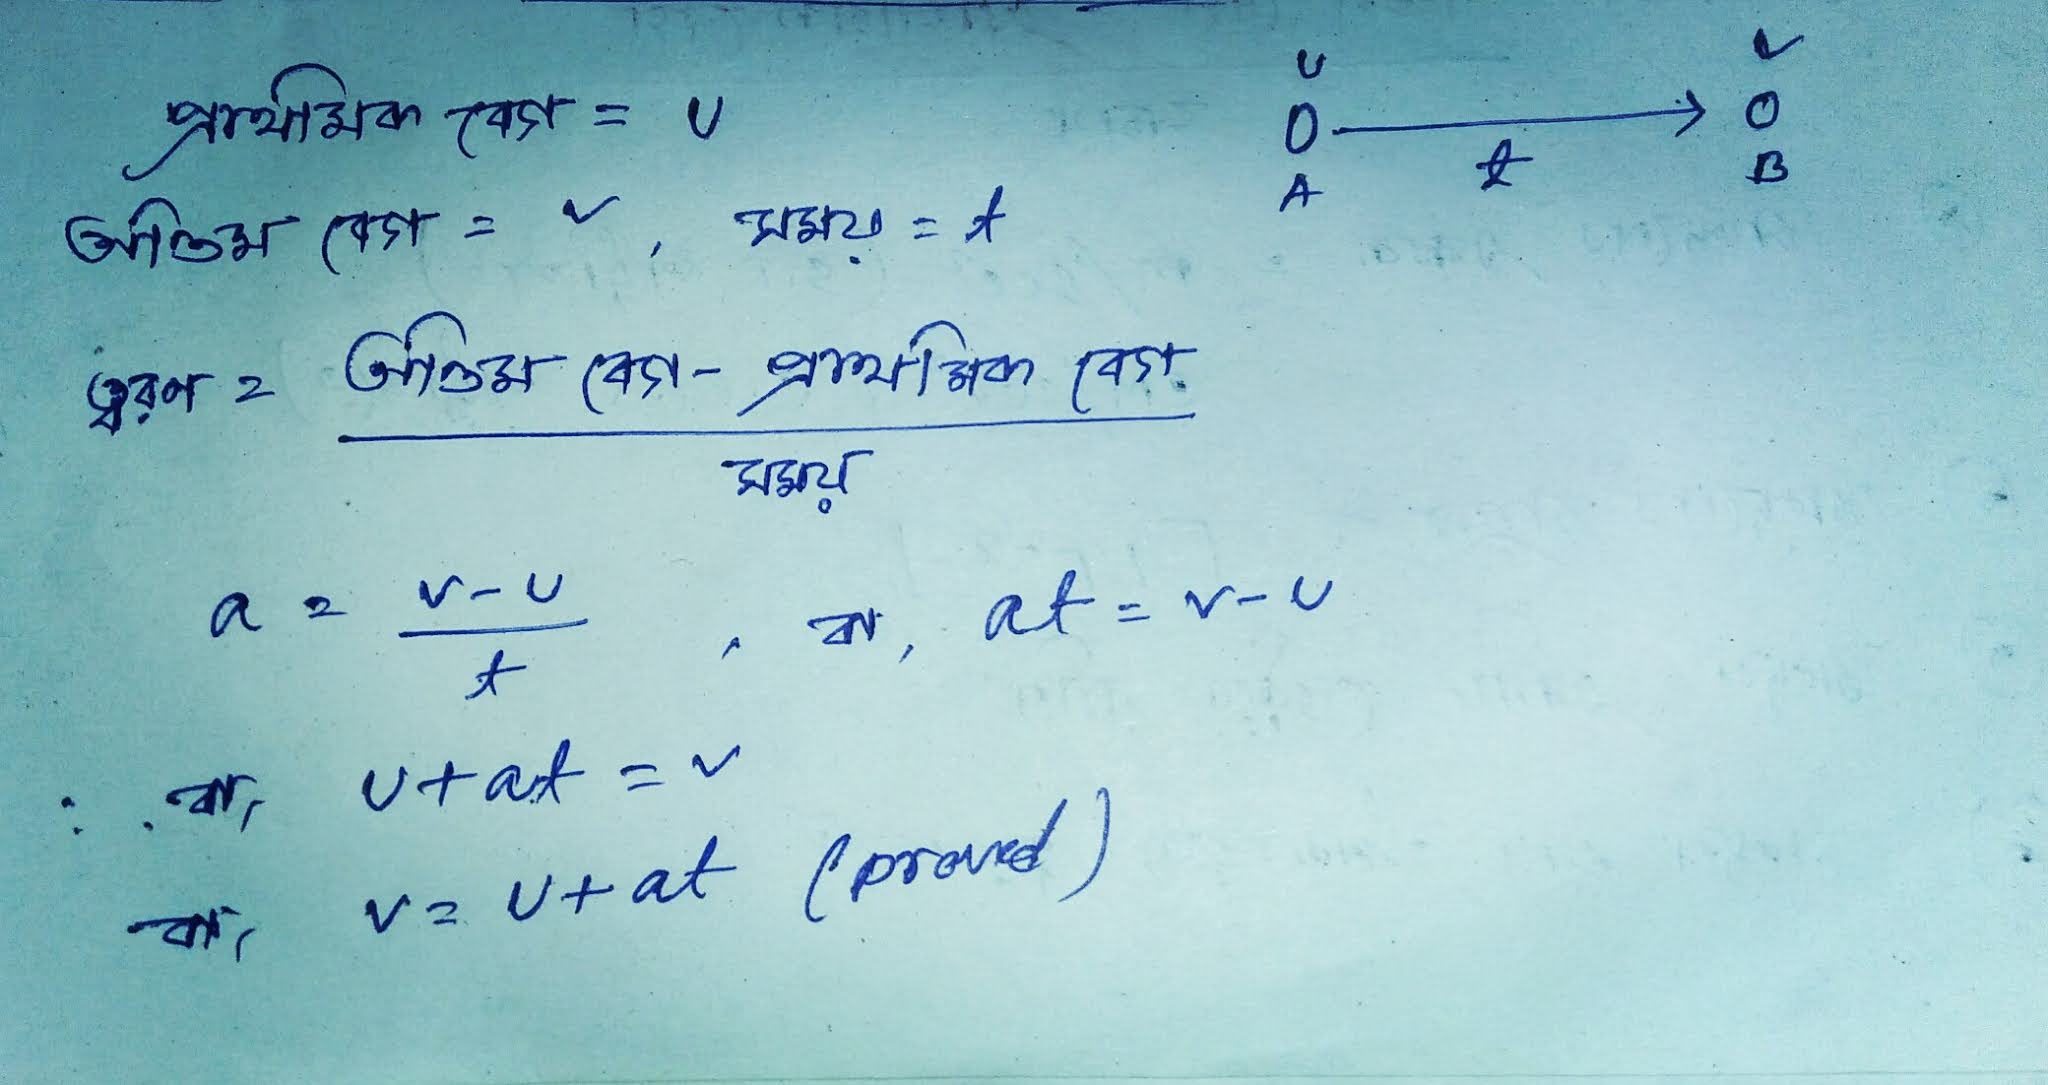 প্রাথমিক বেগ = u
u v
t
A B
অন্তিম বেগ = v, সময় = t
ত্বরণ = অন্তিম বেগ - প্রাথমিক বেগ
সময়
a = v-u
t
, বা, at = v-u
∴ বা, u+at = v
বা, v = u+at (proved)